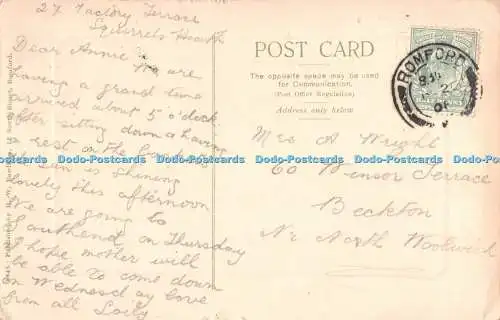 27 Factory Terrace
Squirrels Heath
Dear Annie We are
having a grand time
arrived about 5 o'clock
after sitting down & having
a rest on the
the sun is shining
lovely this afternoon
We are going to
Southend on Thursday
I hope mother will
be able to come down
on Wednesday love
from all
POST CARD
The opposite space may be used
for Communication.
(Post Office Regulation)
Address only below
ROMFORD
Mrs A Wright
60 Winsor Terrace
Beckton
Nr North Woolwich
Dodo-Postcards Dodo-Postcards Dodo-Postcards Dodo-Postcards Dodo-Postcards Dodo-Postcards